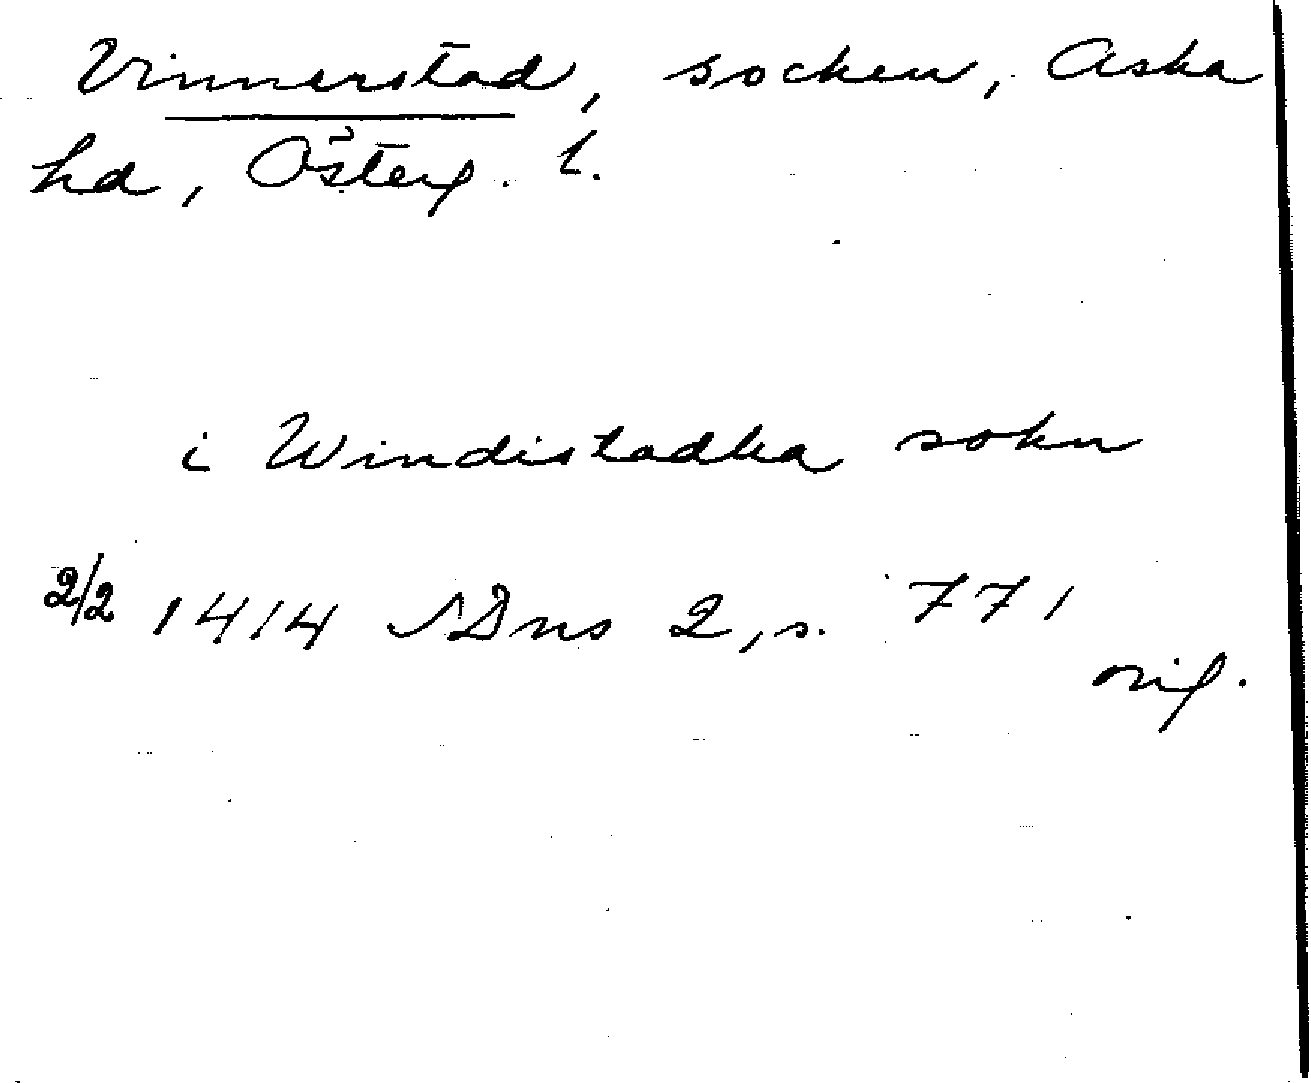 Vinnerstad, socken, Aska
hd, Österg. l.
i Windistadha sokn
2/2 1414 SDns 2, s. 771
orig.